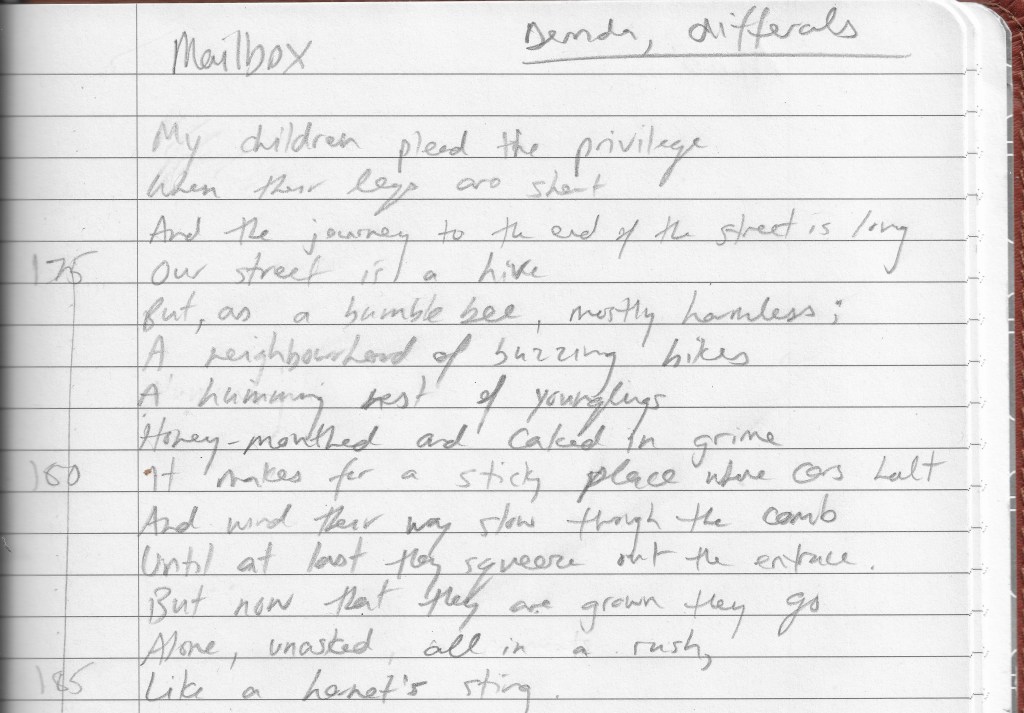 Mailbox
Derrida, differals
My children plead the privilege
When their legs are short
And the journey to the end of the street is long
175 Our street is a hive
But, as a bumble bee, mostly harmless;
A neighbourhood of buzzing bikes
A humming nest of younglings
Honey-mouthed and caked in grime
180 It makes for a sticky place where cars halt
And wind their way slow through the comb
Until at last they squeeze out the entrace.
But now that they are grown they go
Alone, unasked, all in a rush,
185 Like a hornet's sting.